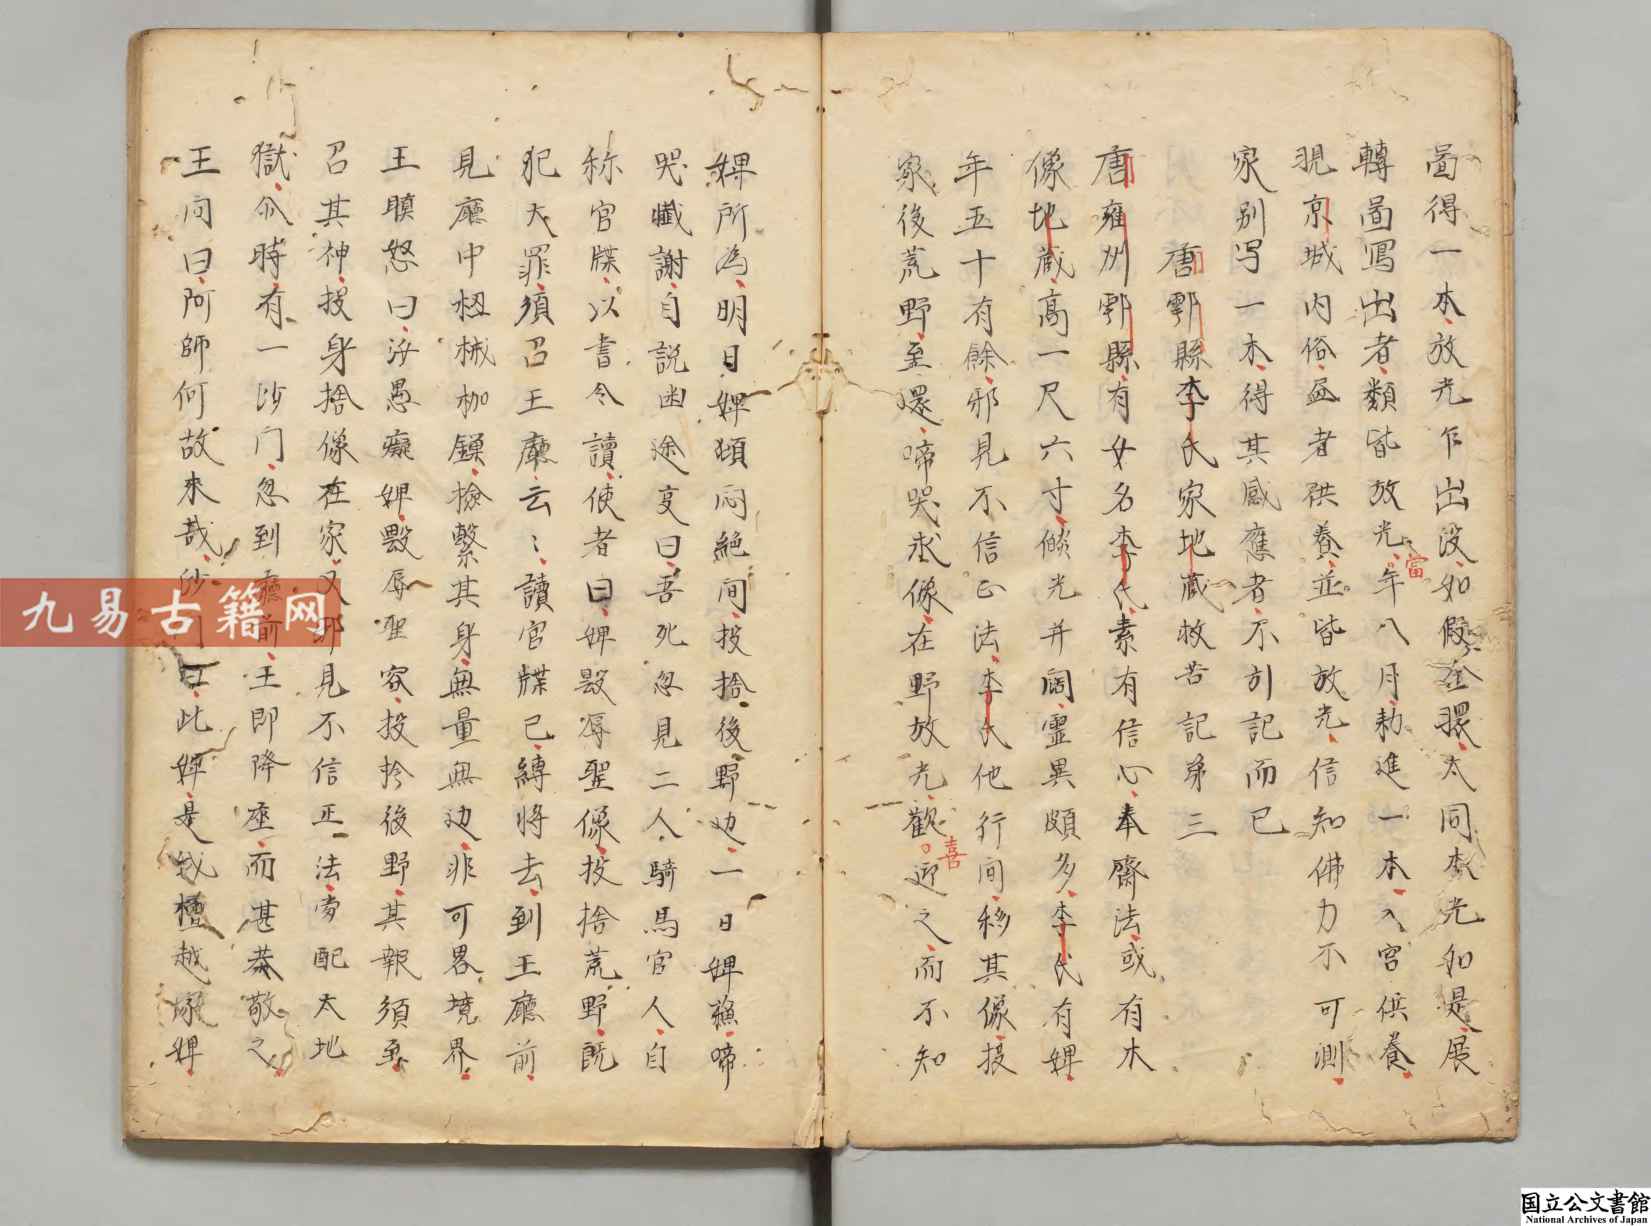 啚得一本放光乍出没如假金環太同本光如是展
轉啚寫出者類皆放光當年八月勅進一本入宮供養
現京城内俗盈者供養並皆放光信知佛力不可測
家别写一本得其感應者不別記而已
唐鄠縣李氏家地藏救苦記第三
唐雍州鄠縣有女名李氏素有信心奉齋法或有木
像地藏高一尺六寸倐光并闊靈異頗多李氏有婢
年五十有餘邪見不信正法李氏他行間移其像投
家後荒野至還啼哭求像在野放光歡喜迎之而不知
婢所為明日婢頓悶絶間投捨後野边一日婢穌啼
哭懺謝自説幽途㕝曰吾死忽見二人騎馬官人自
称官牒以書令讀使者曰婢毀辱聖像投捨荒野既
犯大罪須召王廳云々讀官牒已縛將去到王廳前
見廳中杻械枷鏁撿繫其身無量無边非可畧境界
王瞋怒曰汝愚癡婢毀辱聖容投於後野其報須急
召其神投身捨像在家又邪見不信正法当配太地
獄尒時有一沙门忽到廳前王即降座而甚恭敬之
王问曰阿師何故来哉沙门曰此婢是我檀越塚婢
九易古籍网
国立公文書館
National Archives of Japan